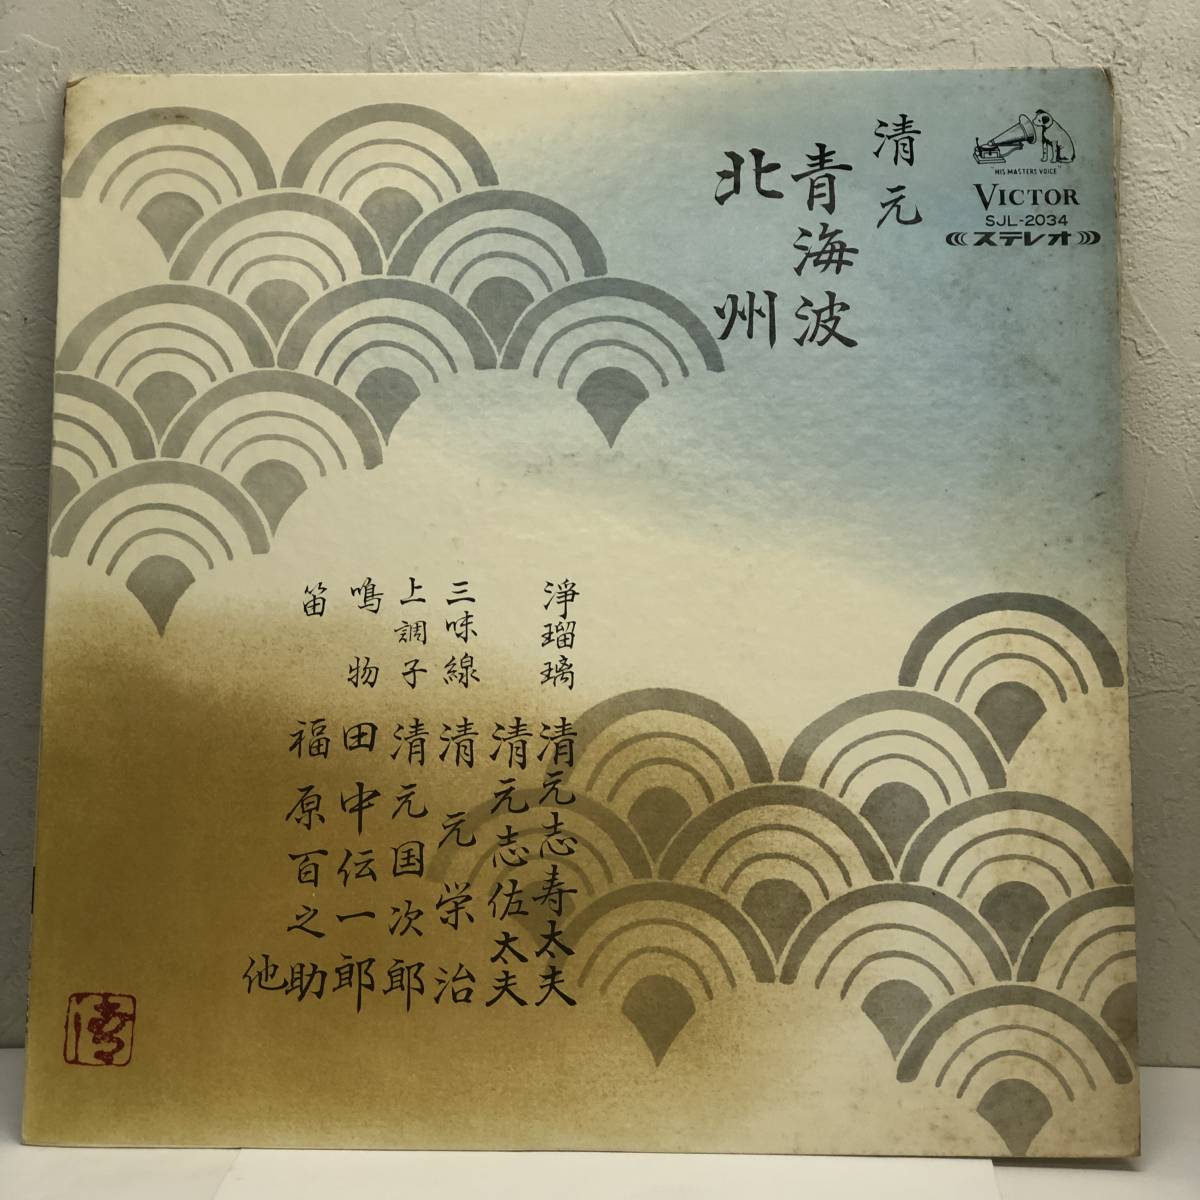 清元
青海波
北州
"HIS MASTERS VOICE"
VICTOR
SJL-2034
ステレオ
浄瑠璃 清元志寿太夫
清元志佐太夫
三味線 清元栄治
上調子 清元国次郎
鳴物 田中伝一郎
笛 福原百之助
他